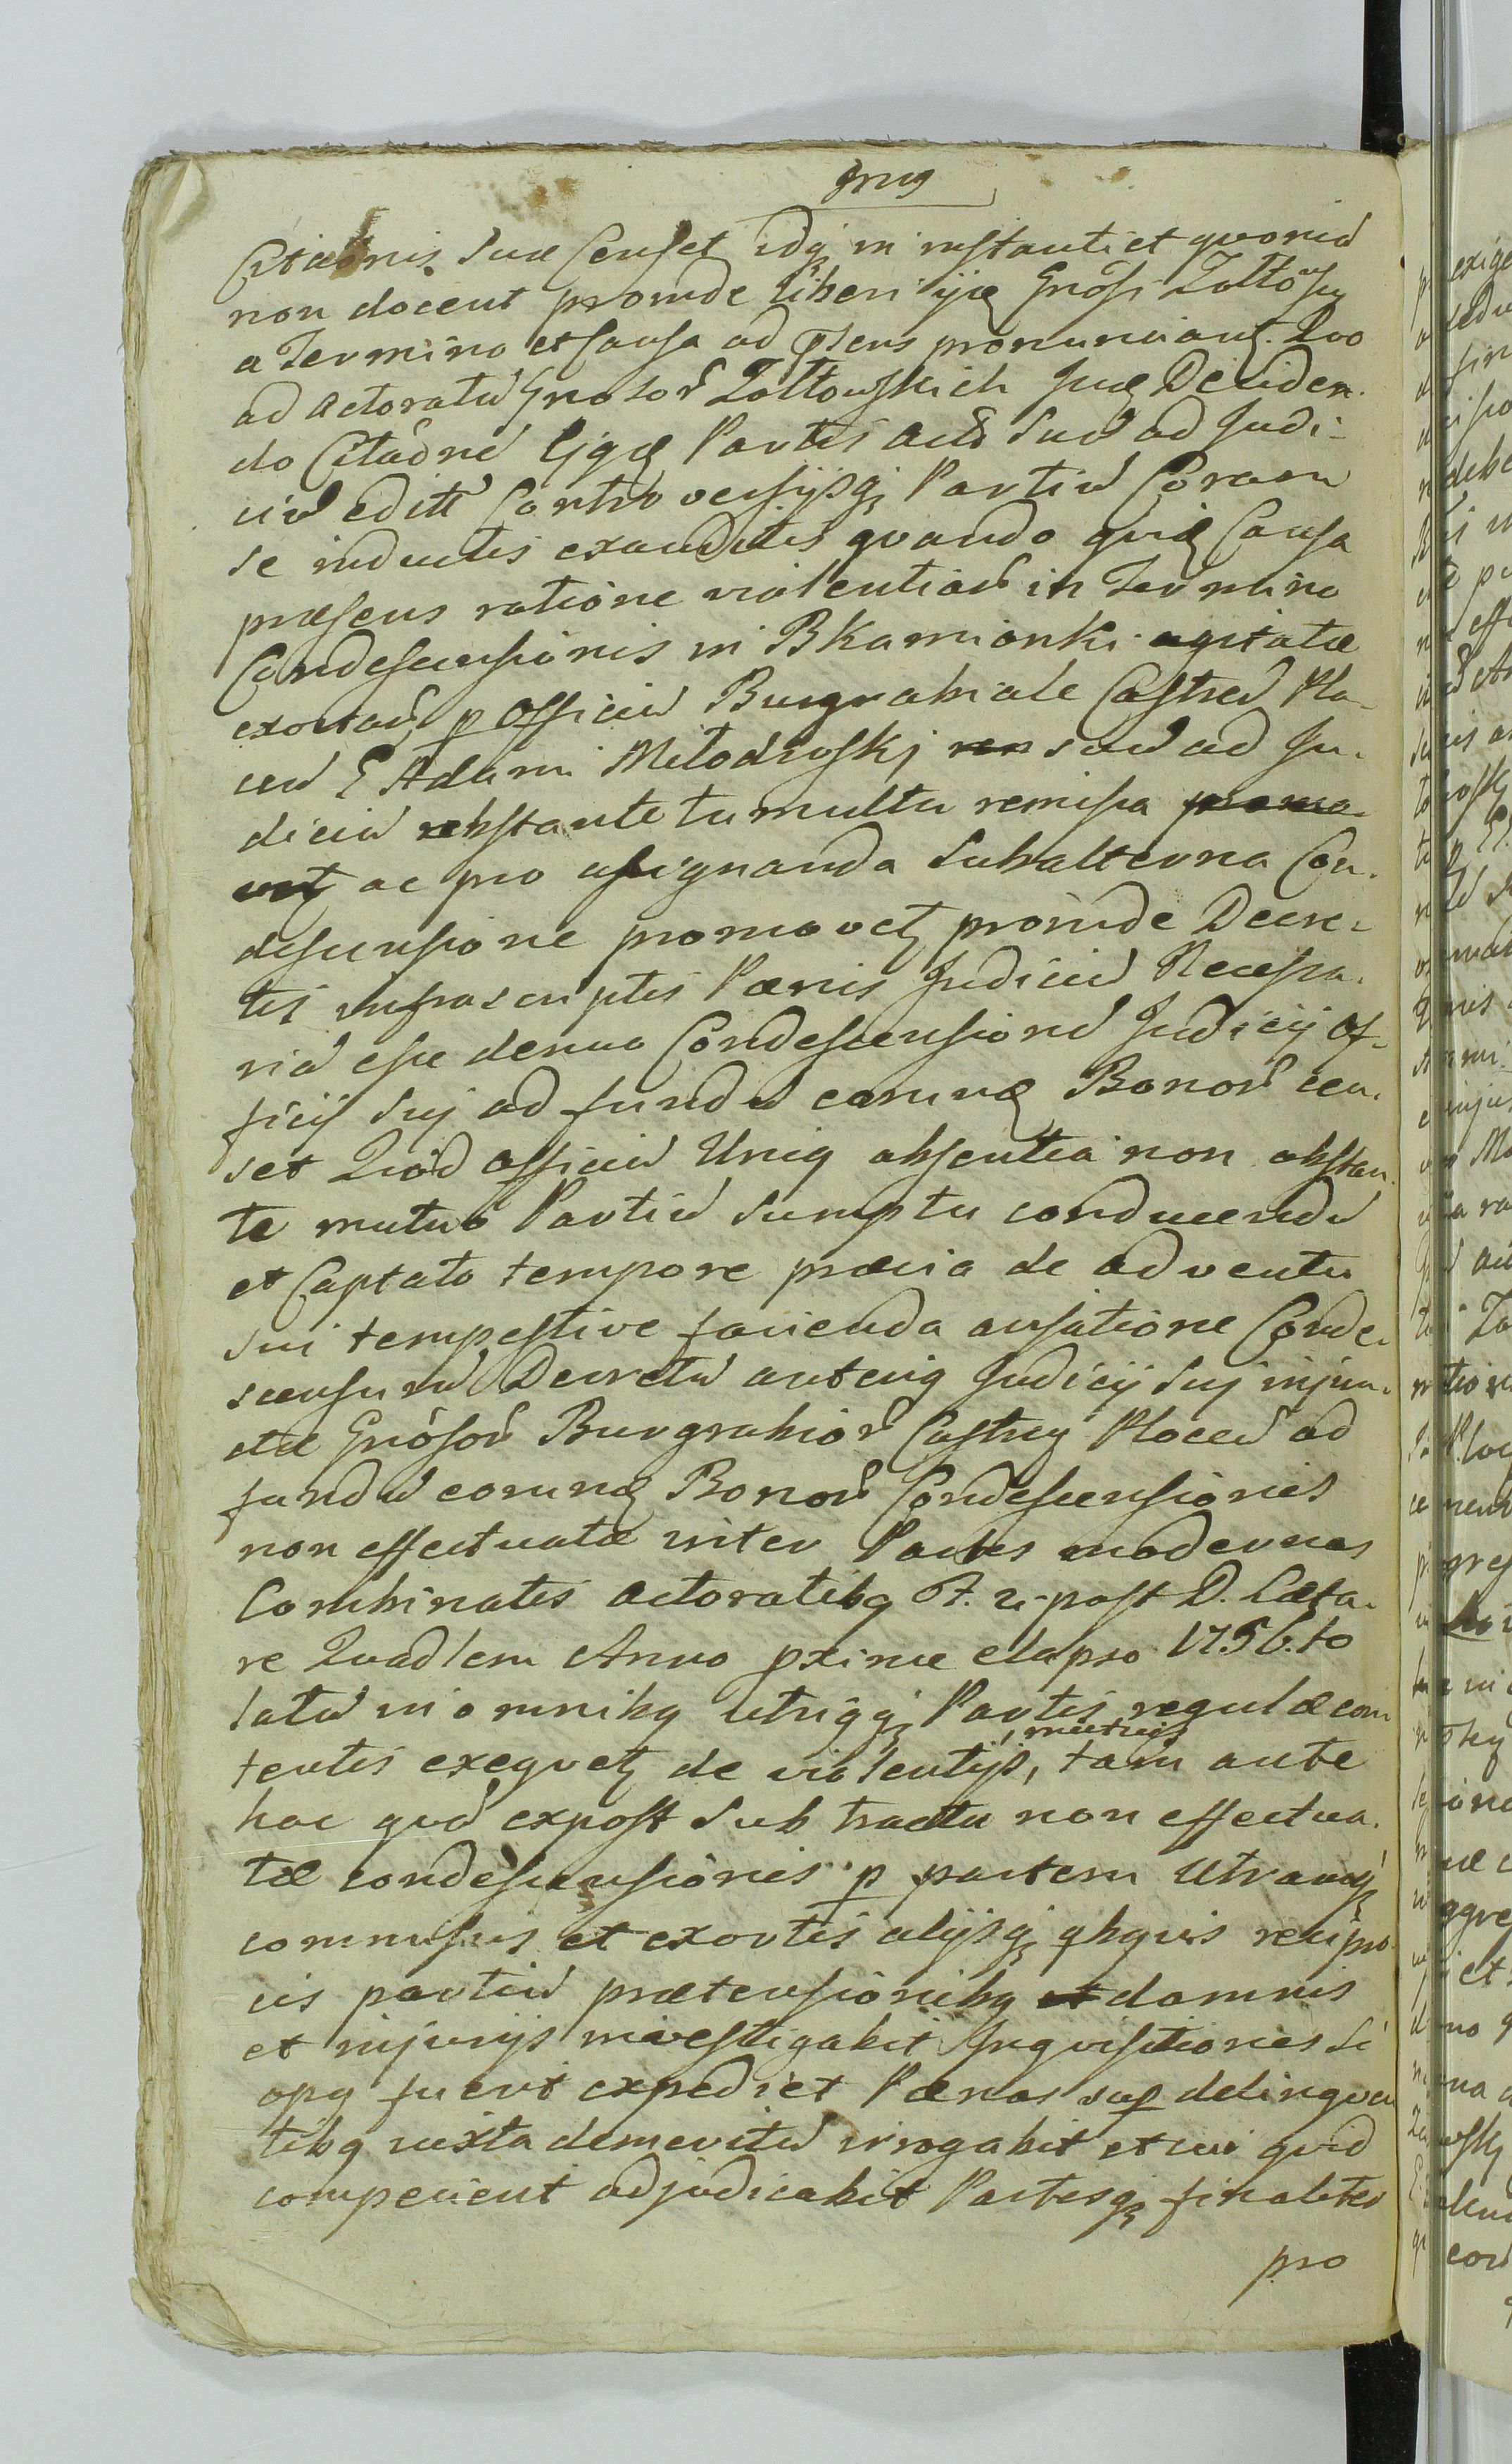 Citaõnis suæ Censet idq̃ in instanti et quoniã
non docent proinde liberi ijdẽ Gnõsi Zołtowsky
a Termino et Causa ad p̃sens pronunciant. Quo
ad Actoratũ Gnosor̃ Zołtowskich suæ Deciden
do Citaõnẽ Ejqz Partis actõ suũ ad Judi-
ciũ editũ Controversijsq̃ Partiũ Coram
se inductis exauditis quando quidẽ Causa
præsens ratione violentiar̃ in Termino
Condescensionis in B Kamionki agitatæ
exortar̃ p Officiũ Burgrabiale Castreñ Plo-
ceñ G Adami Młodzɩoskj suũ ad Ju-
diciũ obstante tumultu remissa
ac pro assignanda Subalterna Con-
descensione promovetʒ proinde Decre-
tis infrascriptis Pænis Judiciũ Necessa-
riã esse denuo Condescensionẽ Judicij Of-
ficij Suj ad fundũ eorundẽ Bonor̃ cen-
set Quõd Officiũ Uniq absentia non obstan
te mutuo Partiũ sumptu conducendũ
et Captato tempore prævia de adventu
sui tempestive facienda avisatione Conde-
scensurũ Decretũ anteriq Judicij Suj injun-
ctæ Gnõsor̃ Burgrabior̃ Castrēʒ Ploceñ ad
fundũ eorundẽ Bonor̃ Condescensionis
non effectuatæ inter Partes modernas
Combinatis Actoratibq F. 2. post D. Læta-
re Quadlem Anno p̱xime elapso 1756. to
latũ in omnibq Utriqq̃ Partis regulæ con
tentis exeqvetʒ de violentijs, mutuis tam ante
hac qvã expost sub tractu non effectua-
tæ condescensionis p partem Utramq̃
commissis et exortis alijsq̃ qbqvis recipro
cis partiũ prætensionibq damnis
et injurijs investigabit Inqvisitiones si
opq fuerit expediet Pænas sup̱ delinqven
tibq iuxta demeritũ irrogabit et cui qvid
competierit adjudicabit Partesq̃ finaliter
pro